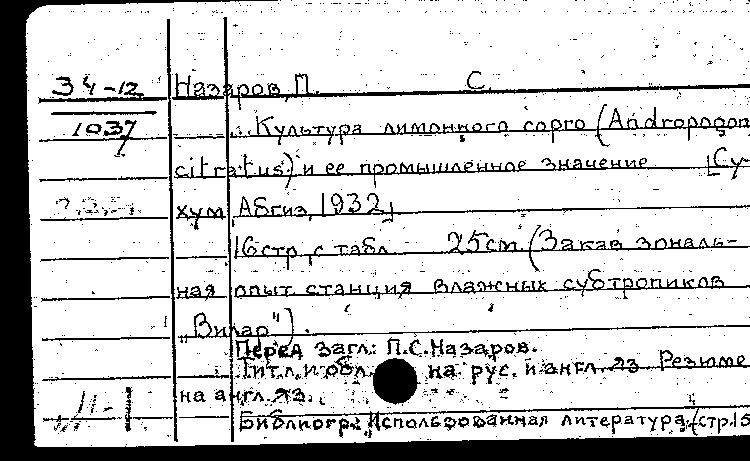 34-12 Назаров, П. С.
1037 Культура лимонного сорго (Andropogon
citratus) и ее промышленное значение [Су-
хум, Абгиз, 1932]
16 стр. с табл. 25 cm. (Закав. зональ-
ная опыт. станция влажных субтропиков
„Вилар").
Перед загл.: П.С. Назаров.
Тит.л. и обл. на рус. и англ. яз. Резюме
на англ. яз.
Библиогр.: Использованная литература, (стр. 15